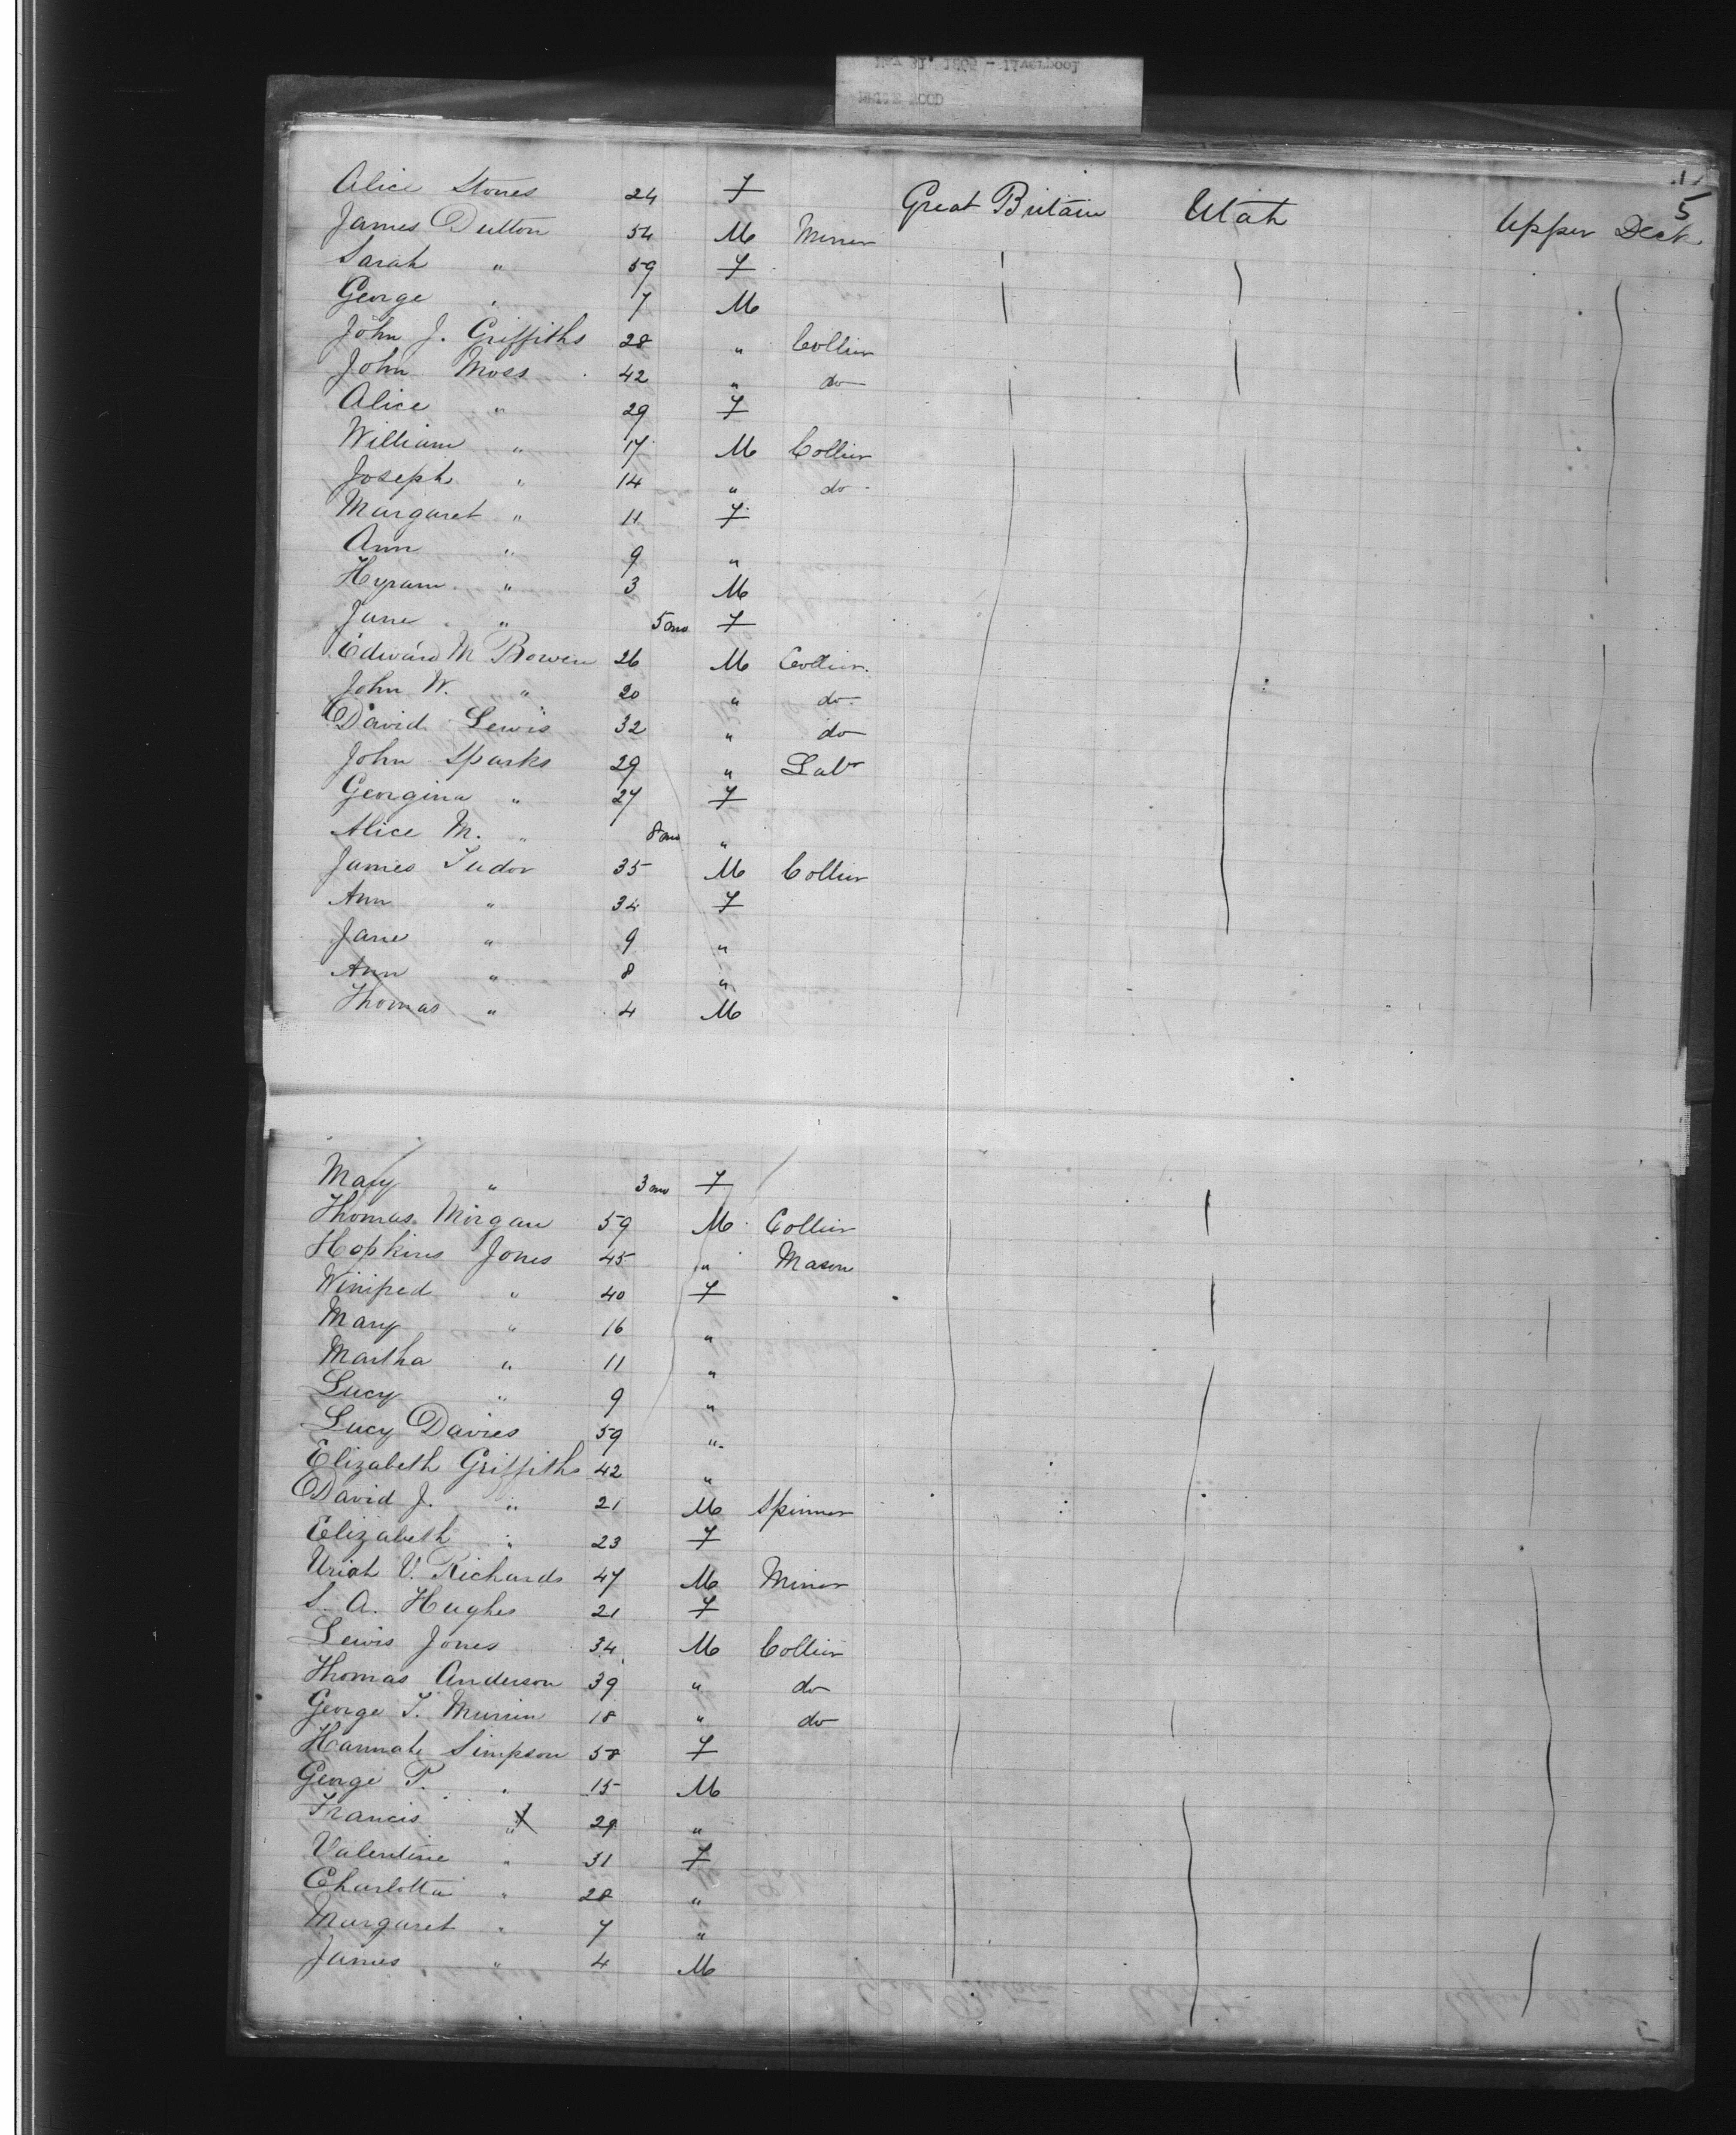 5
Alice Stones 24 F Great Britain Utah Upper Deck
James Dutton 54 M Miner
Sarah " 59 F
George " 7 M
John J. Griffiths 28 " Collier
John Moss 42 " do
Alice " 29 F
William " 17 M Collier
Joseph " 14 " do
Margaret " 11 F
Ann " 9 "
Hyram " 3 M
Jane " 5 mo F
Edward M Bowen 26 M Collier
John W. " 20 " do
David Lewis 32 " do
John Sparks 29 " Labr
Georgina " 27 F
Alice M. " 8 mo "
James Tudor 35 M Collier
Ann " 34 F
Jane " 9 "
Ann " 8 "
Thomas " 4 M
Mary " 3 mo F
Thomas Morgan 59 M Collier
Hopkins Jones 45 " Mason
Winifred " 40 F
Mary " 16 "
Martha " 11 "
Lucy " 9 "
Lucy Davies 59 "
Elizabeth Griffiths 42 "
David J. " 21 M Spinner
Elizabeth " 23 F
Uriah V. Richards 47 M Miner
S. A. Hughes 21 F
Lewis Jones 34 M Collier
Thomas Anderson 39 " do
George T. 18 " do
Hannah Simpson 58 F
George P. " 15 M
Francis " 29 "
Valentine " 31 F
Charlotta " 28 "
Margaret " 7 "
James " 4 M